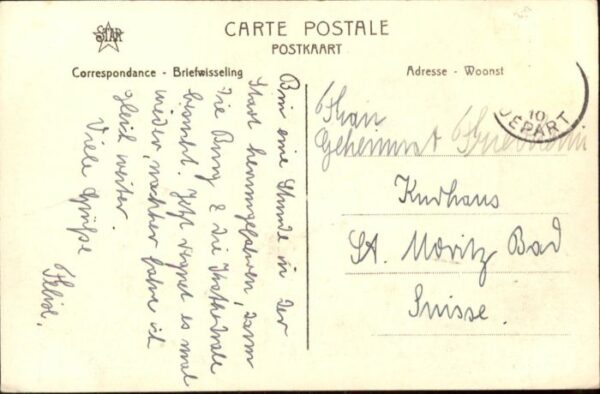 STAR
CARTE POSTALE
POSTKAART
Correspondance - Briefwisseling
Adresse - Woonst
Bin eine Stunde in der
Stadt herumgefahren, dann
die Burg & die Kathedrale
besucht. Jetzt regnet es mal
wieder, nachher fahre ich
gleich weiter.
Viele Grüße
Felix.
10
DEPART
Frau
Geheimrat
Kurhaus
St. Moritz Bad
Suisse.